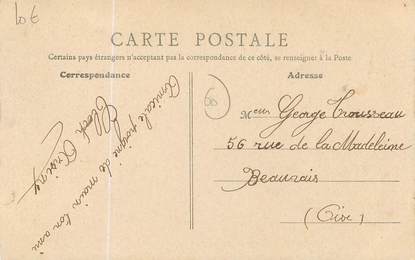 10 €
CARTE POSTALE
Certains pays étrangers n'acceptant pas la correspondance de ce côté, se renseigner à la Poste
Correspondance
Adresse
Amicale poigne de main ton ami
60
Mcur George Trousseau
56 rue de la Madeleine
Beauvais
(Oise)